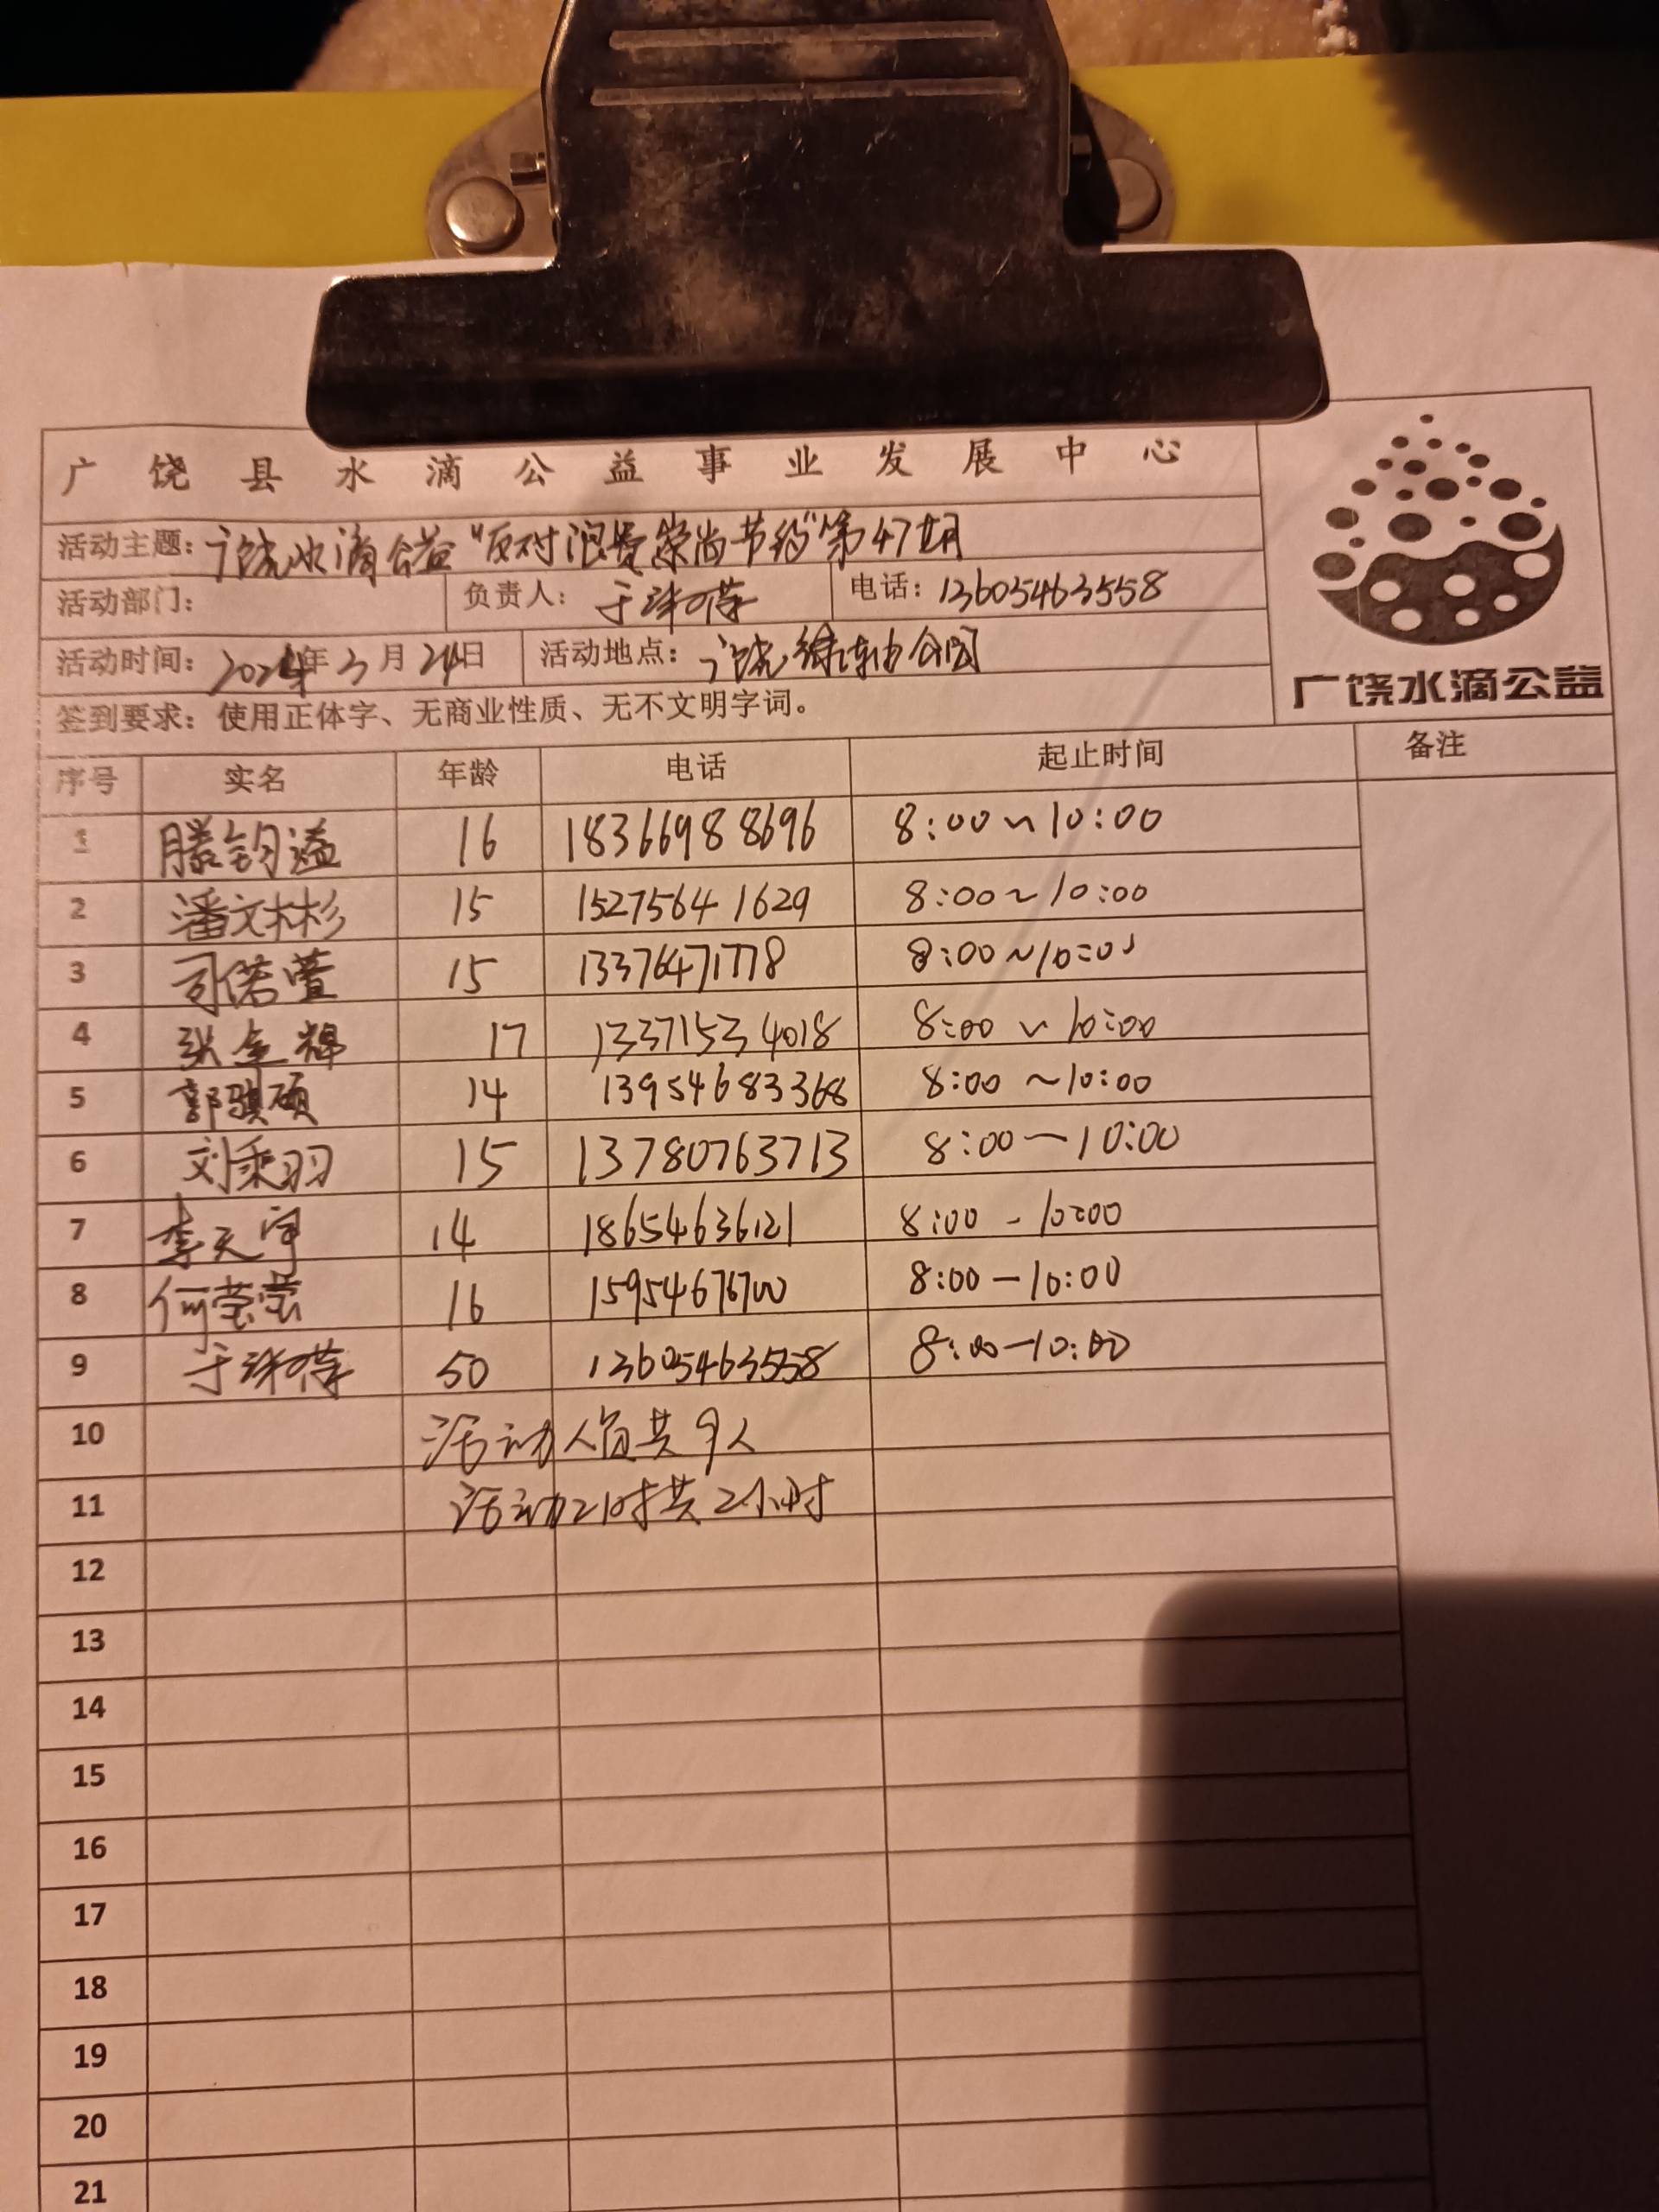 广饶县水滴公益事业发展中心
活动主题：广饶水滴公益“反对浪费崇尚节约”第47期
活动部门： 负责人：于 电话：13605463558
活动时间：2024年3月24日 活动地点：广饶绿轴公园
广饶水滴公益
签到要求：使用正体字、无商业性质、无不文明字词。
序号 实名 年龄 电话 起止时间 备注
1 滕钧溢 16 18366988696 8:00～10:00
2 潘文彬彬 15 15275641629 8:00～10:00
3 司偌萱 15 13376471778 8:00～10:00
4 张金辉 17 13371534018 8:00～10:00
5 郭骐硕 14 13954683368 8:00～10:00
6 刘乘羽 15 13780763713 8:00—10:00
7 李天宇 14 18654636121 8:00-10:00
8 何莹莹 16 15954676700 8:00—10:00
9 于 50 13605463558 8:00—10:00
10 活动人员共9人
11 活动21时共2小时
12
13
14
15
16
17
18
19
20
21